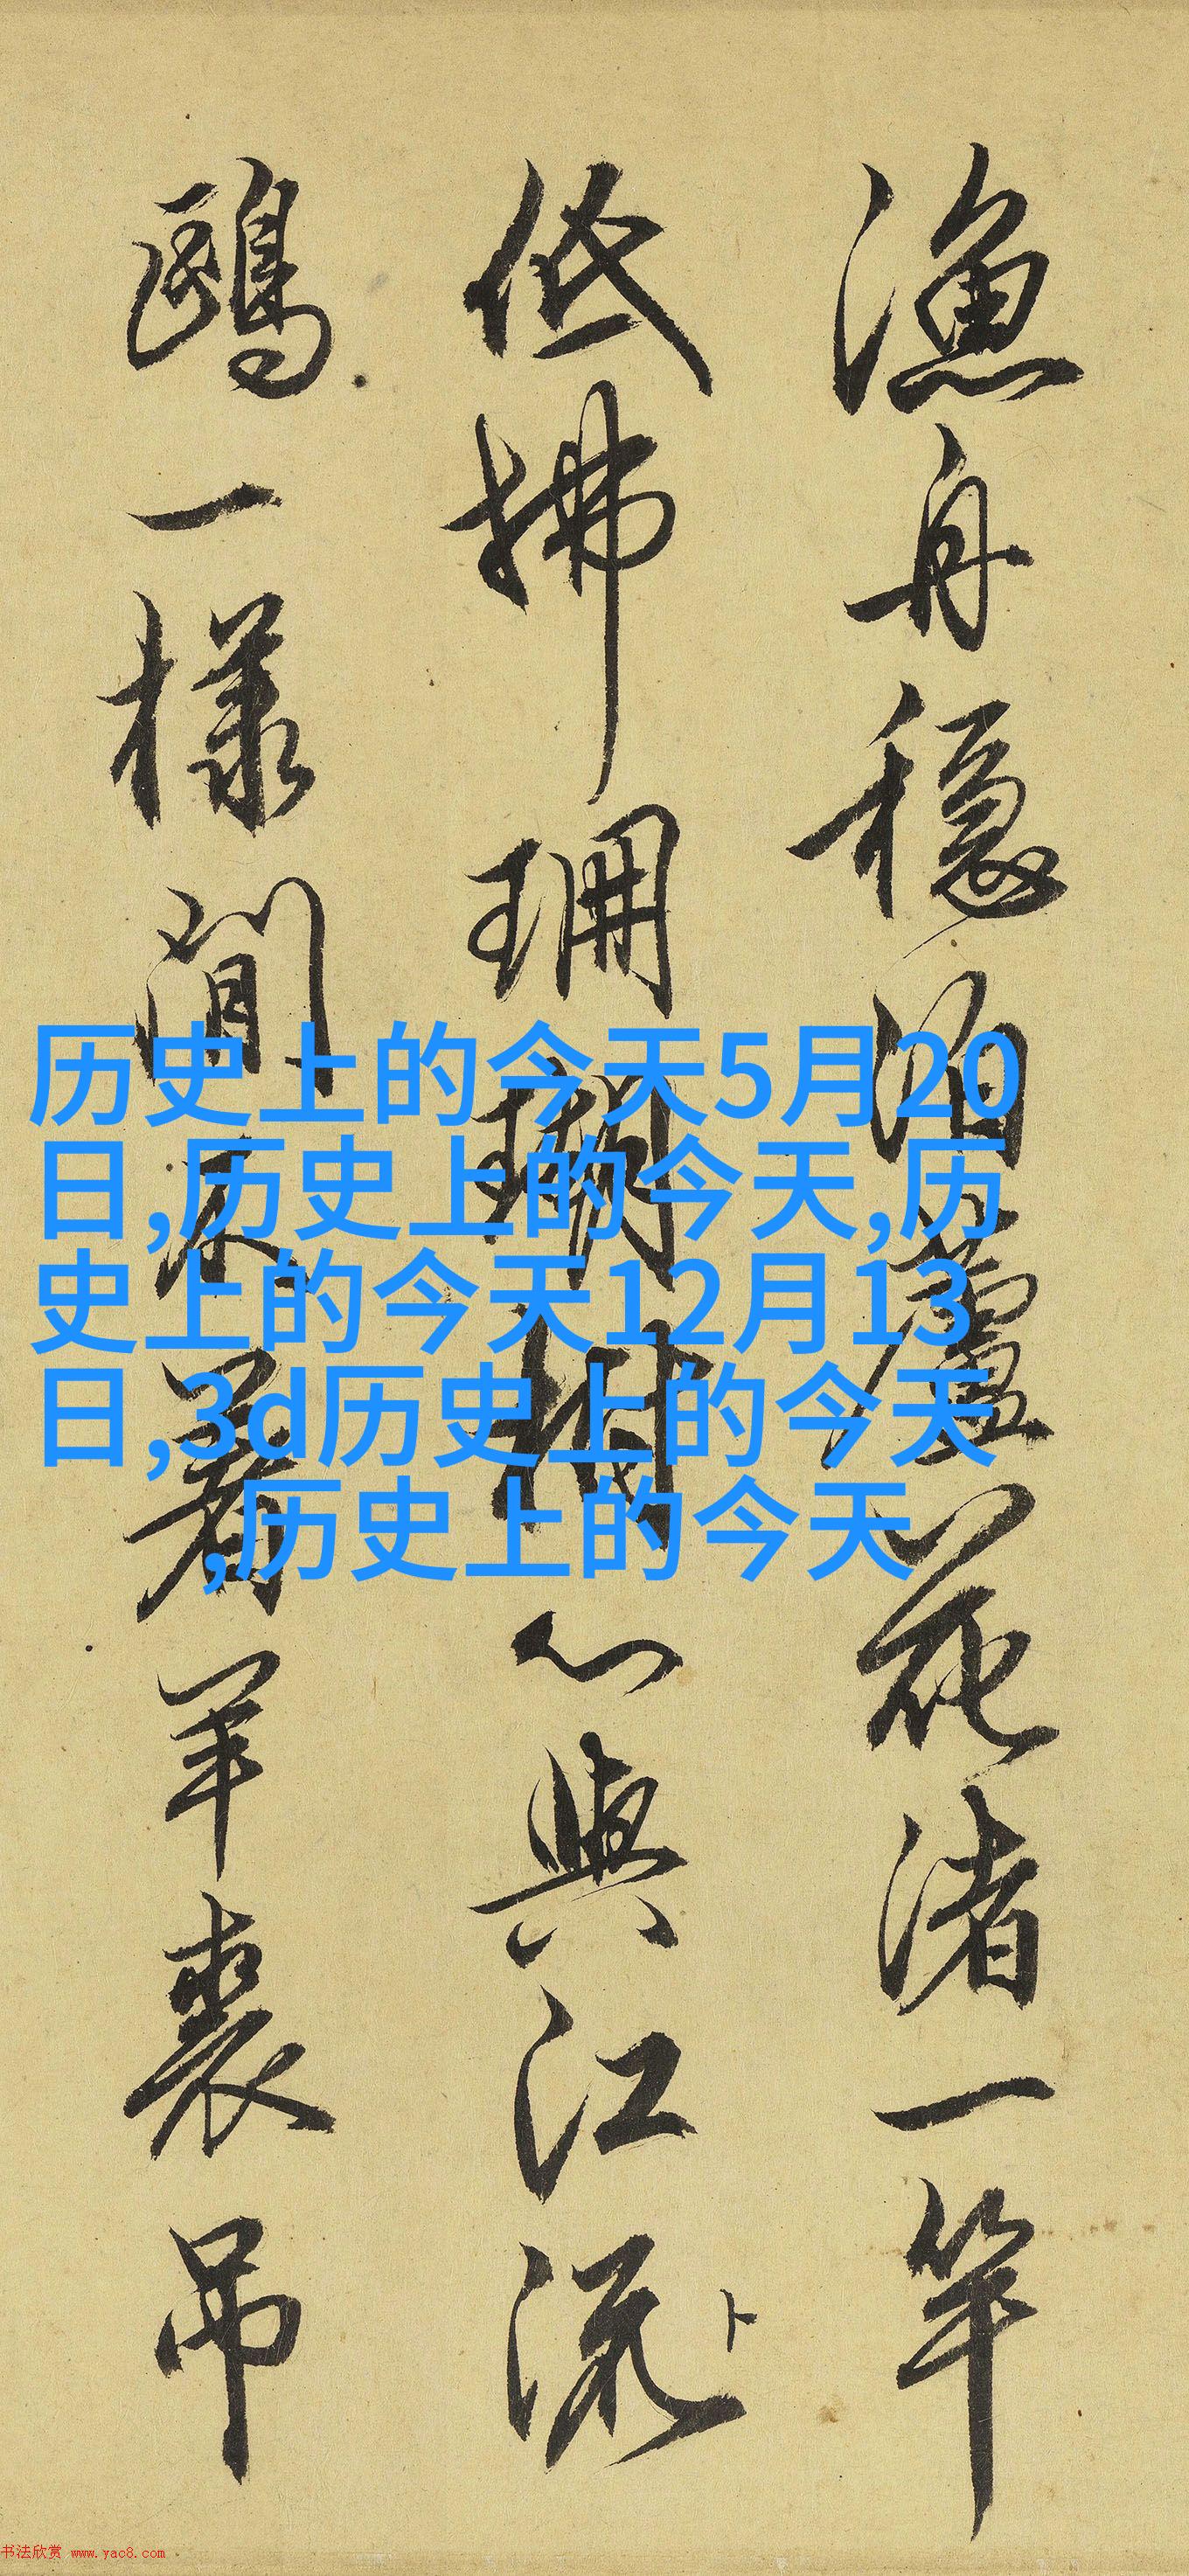 漁舟穩泊蘆花渚一竿
低拂珊瑚樹心與江流卜
鷗一樣閒不著羊裘吊
历史上的今天5月20
日,历史上的今天,历
史上的今天12月13
日,3d历史上的今天
,历史上的今天
书法欣赏 www.yac8.com